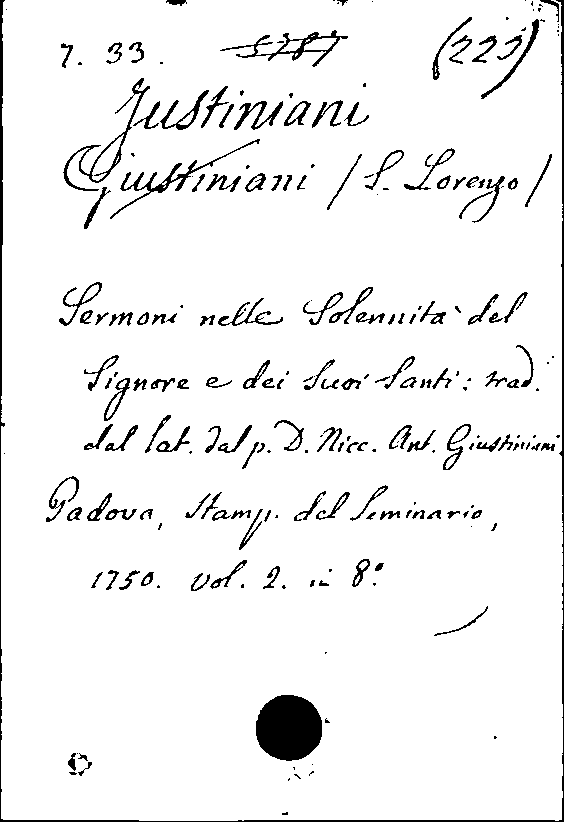 7. 33. 5787 (222)
Justiniani
Giustiniani / S. Lorenzo /
Sermoni nelle Solennità del
Signore e dei suoi Santi: trad.
dal lat. dal p. D. Nicc. Ant. Giustiniani.
Padova, Stamp. del Seminario,
1750. vol. 2. in 8°